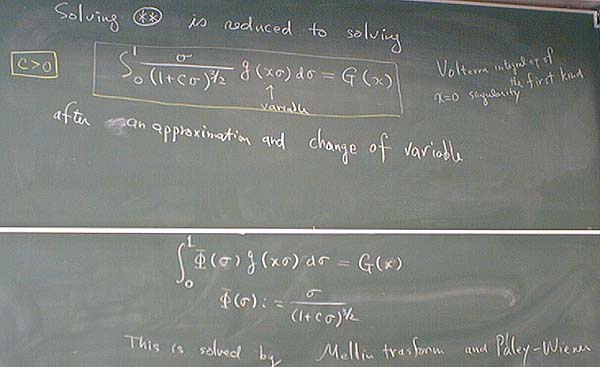 Solving (**) is reduced to solving
C>0
∫₀¹ σ/(1+Cσ)^{3/2} g(xσ) dσ = G(x)
↑
variable
Volterra integral eq of
the first kind
x=0 singularity
after an approximation and change of variable
∫₀¹ Φ(σ) g(xσ) dσ = G(x)
Φ(σ) := σ/(1+Cσ)^{3/2}
This is solved by Mellin trasform and Paley-Wiener